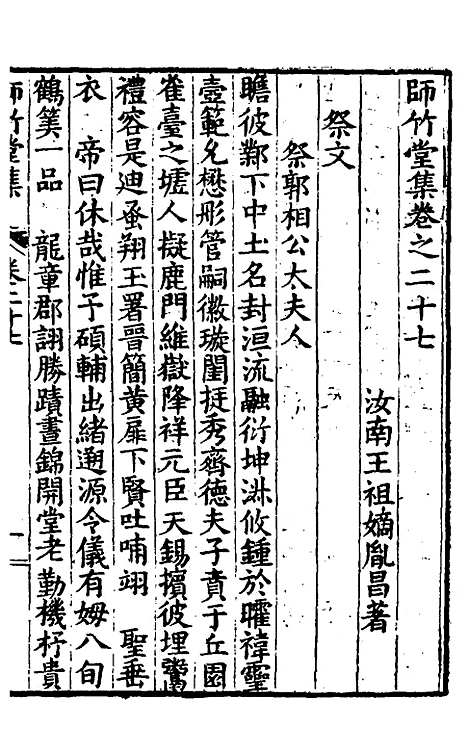 師竹堂集卷之二十七
汝南王祖嫡胤昌著
祭文
祭郭相公太夫人
瞻彼鄴下中土名封洹流融衍坤淋攸鍾於曜褘霻
壼範允懋彤管嗣徽璇閨挺秀齊德夫子賁于丘園
雀臺之墟人擬鹿門維嶽降祥元臣天錫擯彼埋鬻
禮容是迪蚤翔玉署晉簡黃扉下賢吐哺翊 聖垂
衣 帝曰休哉惟予碩輔出緒遡源令儀有姆八旬
鶴筭一品 龍章郡詡勝蹟晝錦開堂老勤機杼貴
師竹堂集 卷二十七 一